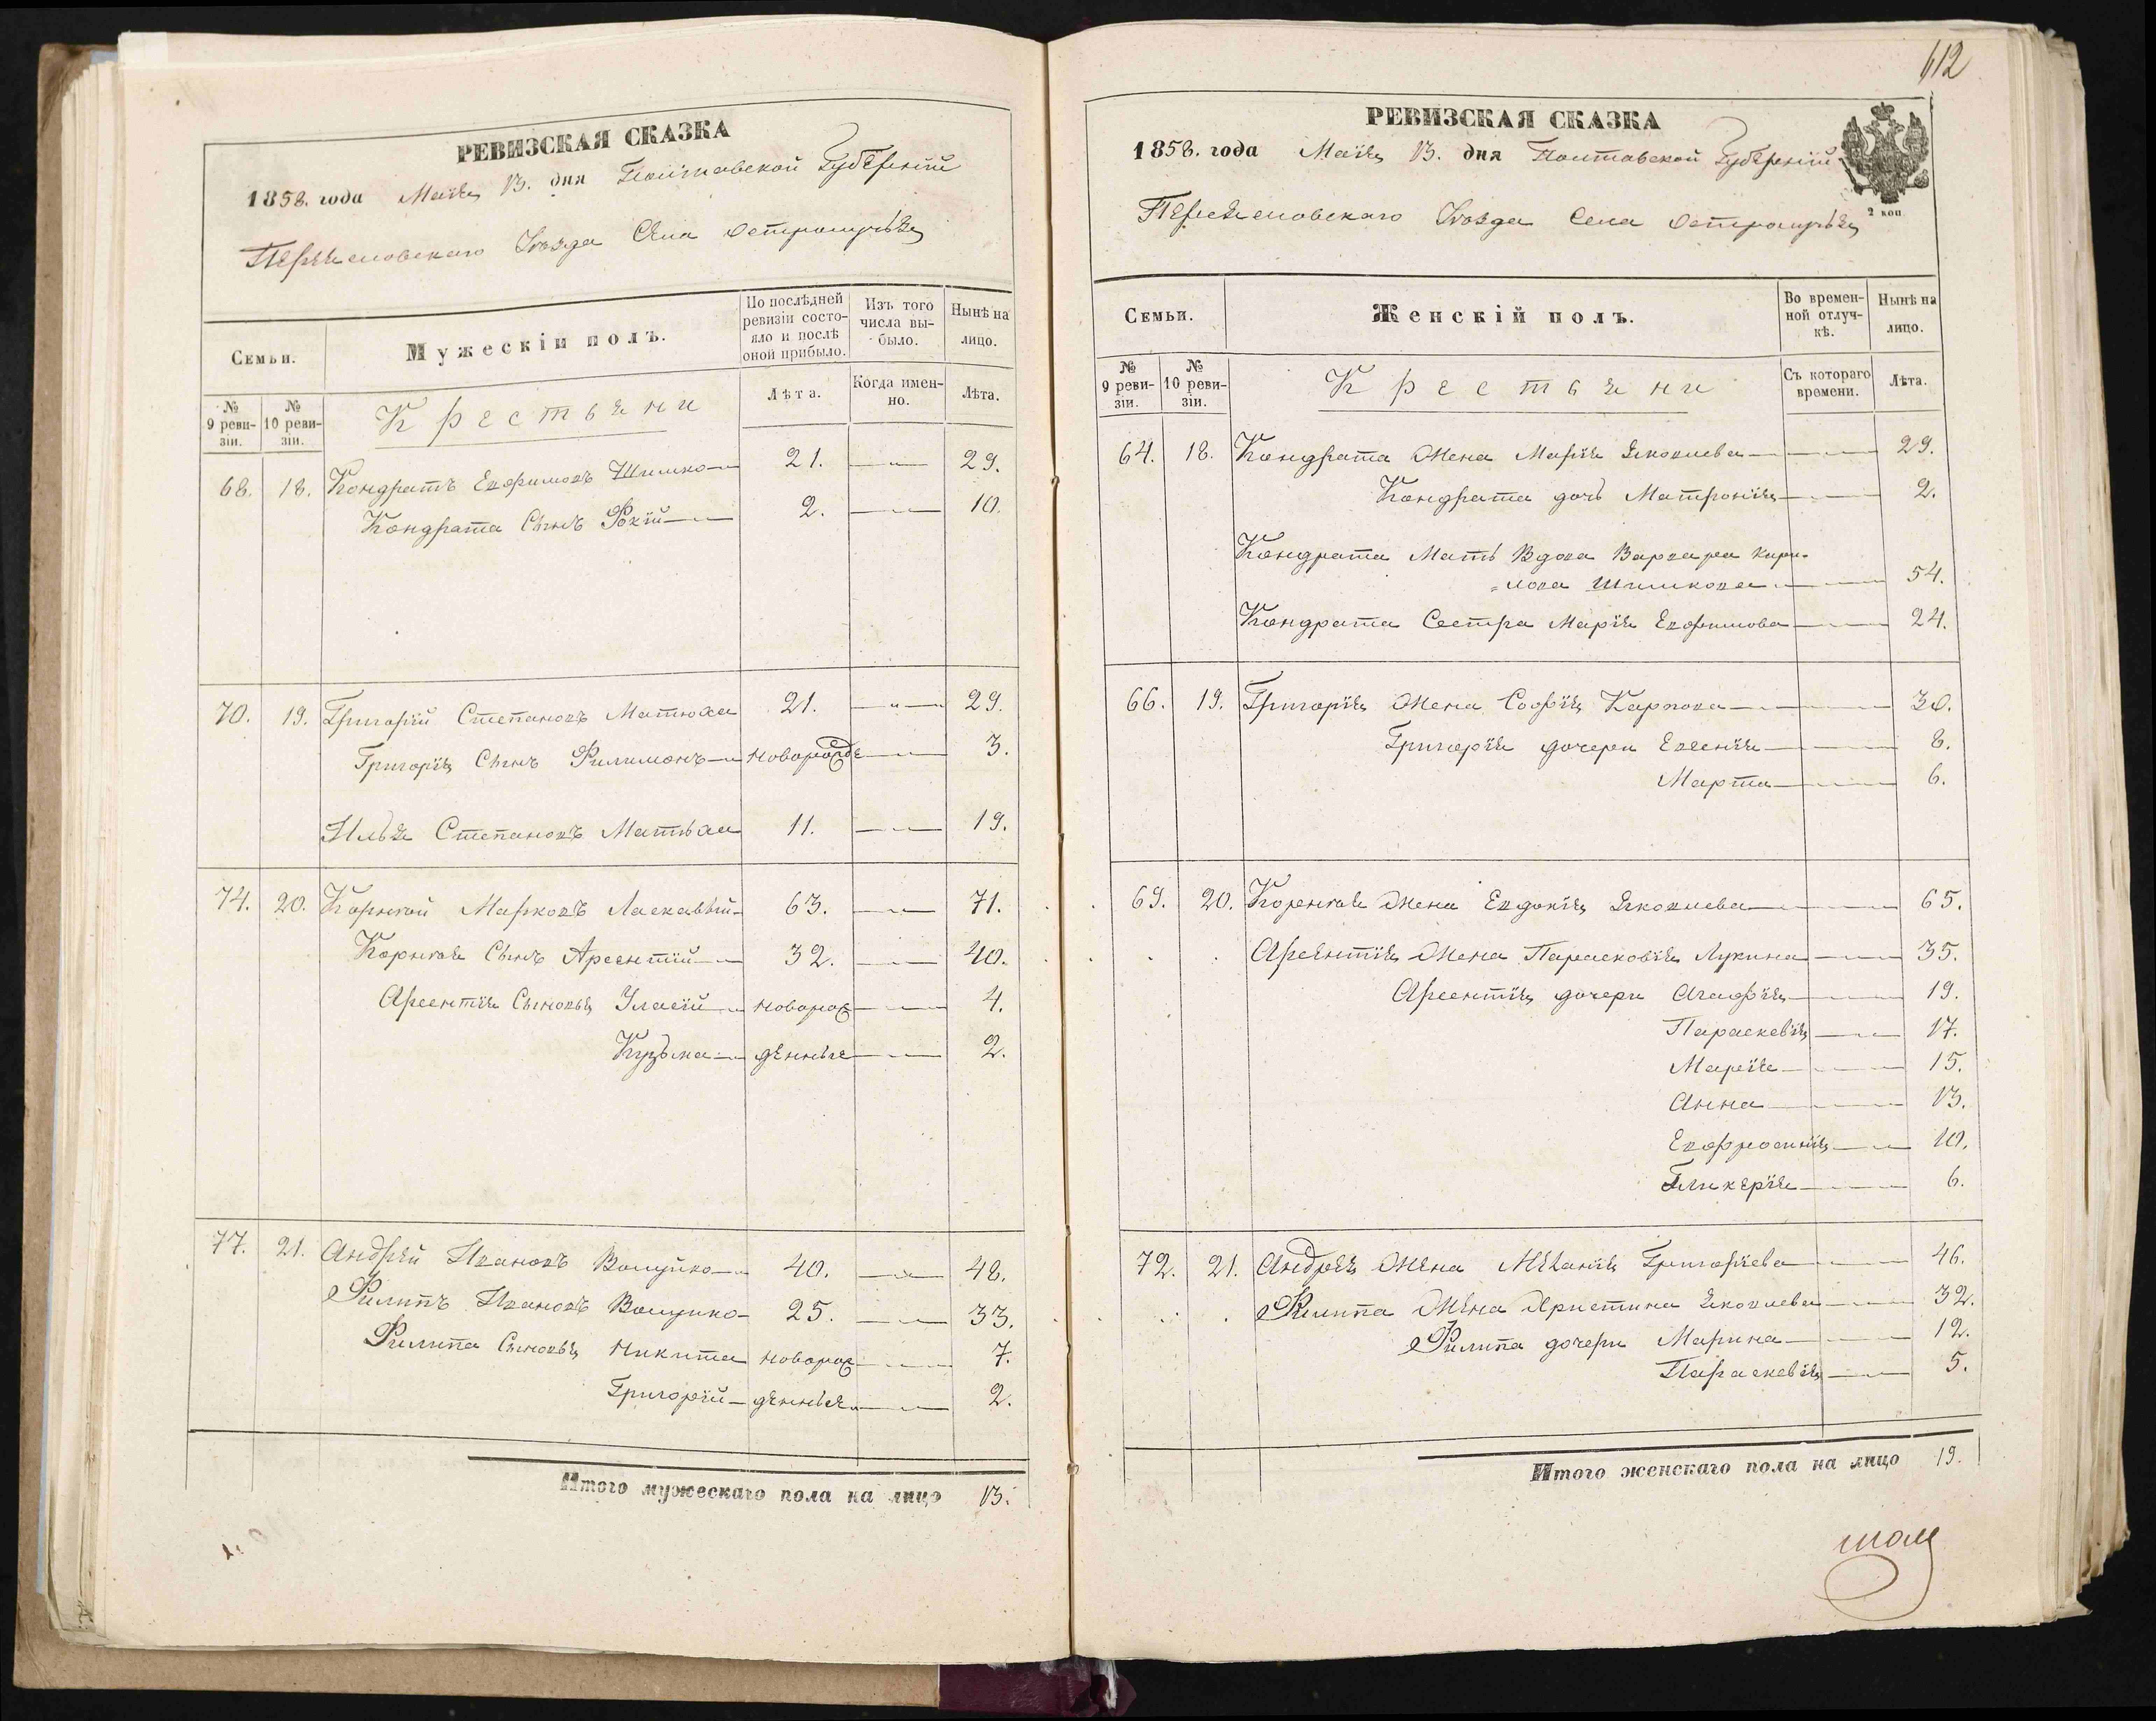 612
РЕВИЗСКАЯ СКАЗКА
1858. года Маія 13. дня Полтавской Губерніи
Переяславскаго Уѣзда Села
Семьи.
Мужескій полъ.
По послѣдней ревизіи состояло и послѣ оной прибыло.
Изъ того числа выбыло.
Нынѣ на лицо.
№ 9 ревизіи.
№ 10 ревизіи.
Крестьяни
Лѣта.
Когда именно.
Лѣта.
68. 18. Кондратъ Евфимовъ Шишко 21. — „ — 29.
Кондрата Сынъ Фокій 2. — „ — 10.
70. 19. Григорій Степановъ Матюха 21. — „ — 29.
Григорія Сынъ Филимонъ новорожде — „ — 3.
Илья Степановъ Матюха 11. — „ — 19.
74. 20. Корнѣй Марковъ Ласкавый 63. — „ — 71.
Корнѣя Сынъ Арсентій 32. — „ — 40.
Арсентія Сыновья Уласій новорож — „ — 4.
Кузьма денные — „ — 2.
77. 21. Андрей Ивановъ 40. — „ — 48.
Филипъ Ивановъ 25. — „ — 33.
Филипа Сыновья Никита новорож — „ — 7.
Григорій денные — „ — 2.
Итого мужескаго пола на лицо 13.
РЕВИЗСКАЯ СКАЗКА
1858. года Маія 13. дня Полтавской Губерніи
2 коп
Переяславскаго Уѣзда Села
Семьи.
Женскій полъ.
Во временной отлучкѣ.
Нынѣ на лицо.
№ 9 ревизіи.
№ 10 ревизіи.
Крестьяни
Съ котораго времени.
Лѣта.
64. 18. Кондрата Жена Марія Яковлева — 29.
Кондрата дочь Матронія — 2.
Кондрата Мать Вдова Варвара Кири=
=лова Шишкова — 54.
Кондрата Сестра Марія Евфимова — 24.
66. 19. Григорія Жена Софія Карпова — 30.
Григорія дочери Евгенія — 8.
Марта — 6.
69. 20. Корнѣя Жена Евдокія Яковлева — 65.
Арсентія Жена Парасковія Лукина — 35.
Арсентія дочери Агафія — 19.
Параскевія — 17.
Марія — 15.
Анна — 13.
Евфросинія — 10.
Гликерія — 6.
72. 21. Андрея Жена Меланія Григоріева — 46.
Филипа Жена Христина Яковлева — 32.
Филипа дочери Марина — 12.
Параскевія — 5.
Итого женскаго пола на лицо 19.